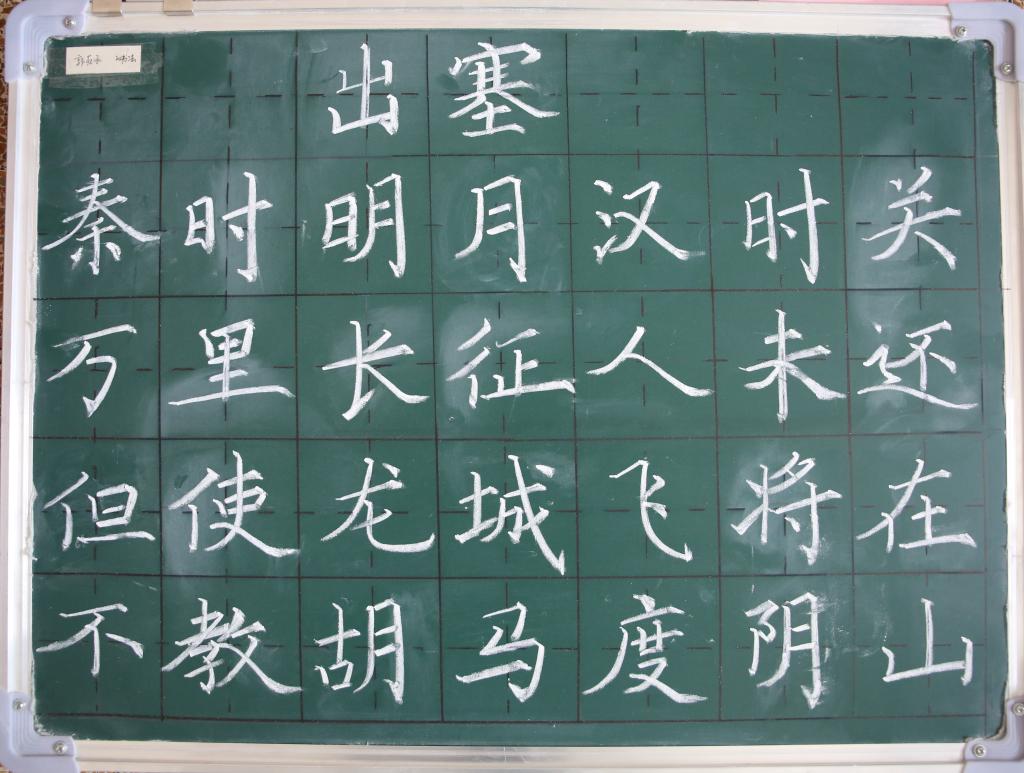 出塞
秦时明月汉时关
万里长征人未还
但使龙城飞将在
不教胡马度阴山